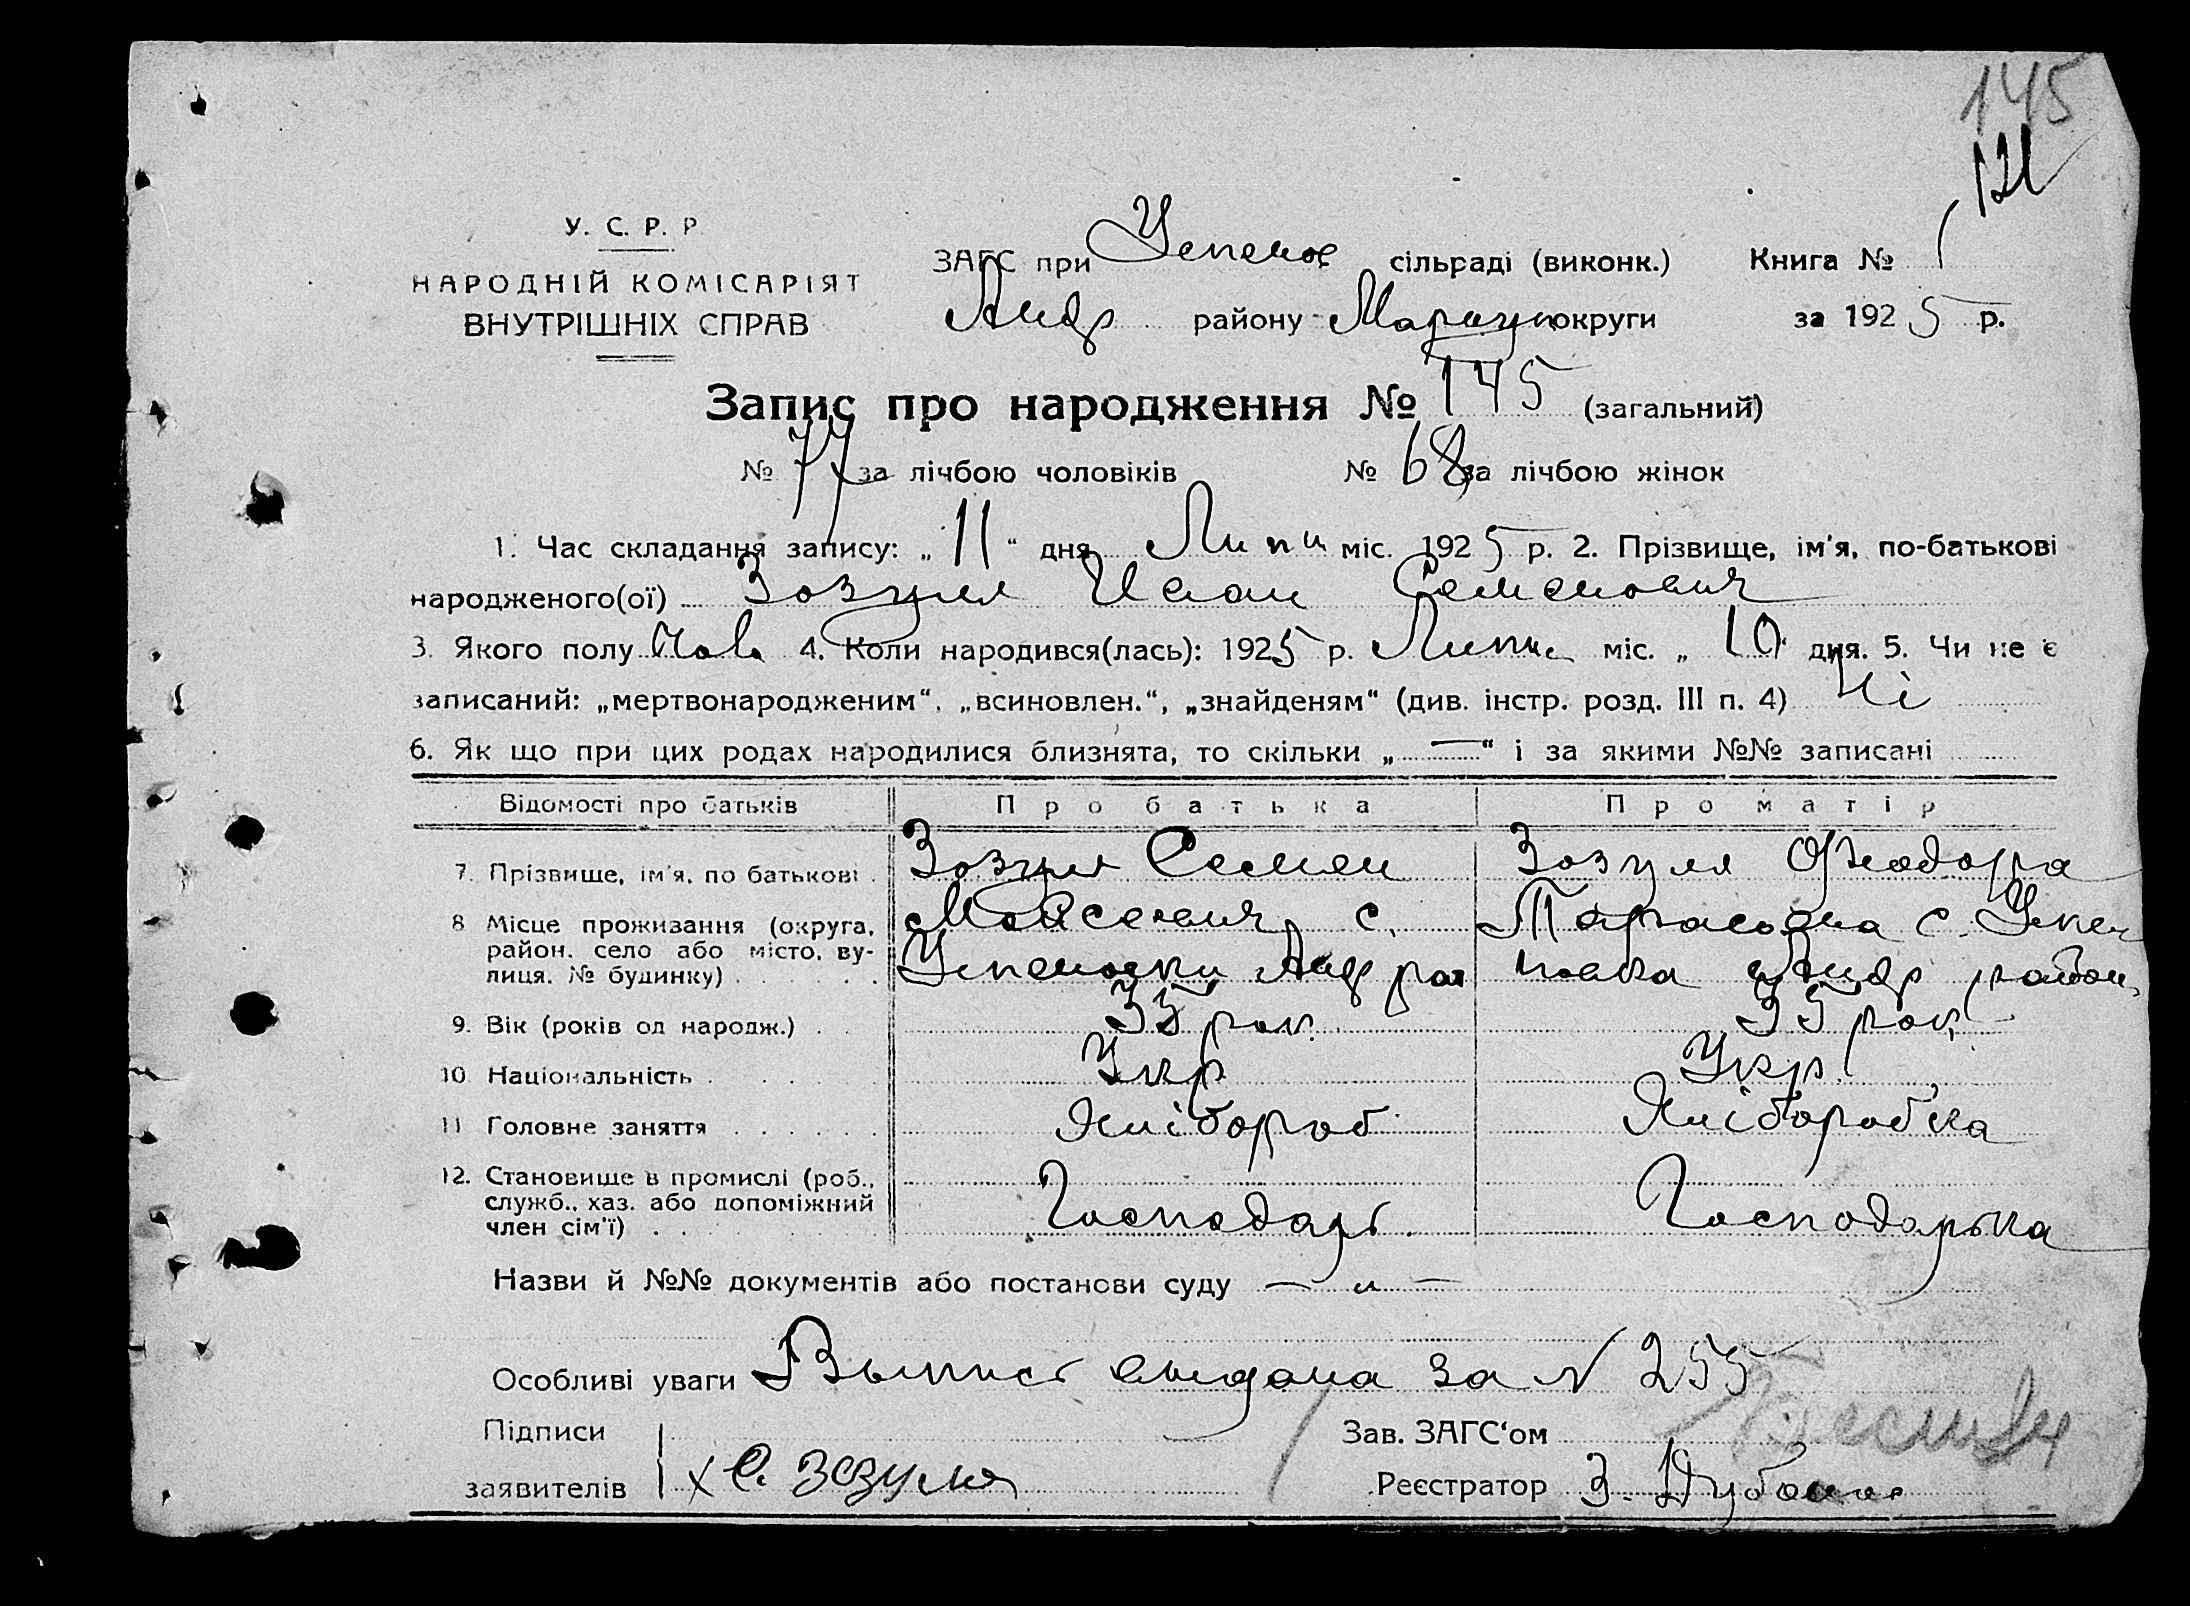 145
121
У. С. Р. Р
НАРОДНІЙ КОМІСАРІЯТ
ВНУТРІШНІХ СПРАВ
ЗАГС при Успенов сільраді (виконк.) Книга № 1
Андр району Мариуп округи за 1925 р.
Запис про народження № 145 (загальний)
№ 77 за лічбою чоловіків № 68 за лічбою жінок
1. Час складання запису: „11“ дня Липн міс. 1925 р. 2. Прізвище, ім'я, по-батькові
народженого(ої) Зозуля Иван Семенович
3. Якого полу Чол. 4. Коли народився(лась): 1925 р. Липня міс. „10“ дня. 5. Чи не є
записаний: „мертвонародженим“, „всиновлен.“, „знайденям“ (див. інстр. розд. III п. 4) Ні
6. Як що при цих родах народилися близнята, то скільки „—“ і за якими №№ записані
Відомості про батьків Про батька Про матір
7. Прізвище, ім'я, по батькові Зозуля Семен Зозуля Феодора
8 Місце проживання (округа, Мойсеевич с. Тарасовна с. Успен
район, село або місто, ву-
лиця, № будинку) Успеновки Андр рай новка Андр район,
9. Вік (років од народж.) 35 рок. 35 рок
10 Національність Укр Укр
11 Головне заняття Хлібороб Хліборобка
12. Становище в промислі (роб.,
служб., хаз. або допоміжний
член сім'ї) Господарь Господарька
Назви й №№ документів або постанови суду — „ —
Особливі уваги Выпись выдана за N 255
Підписи Зав. ЗАГС'ом
заявителів х С. Зозуля Реєстратор З.